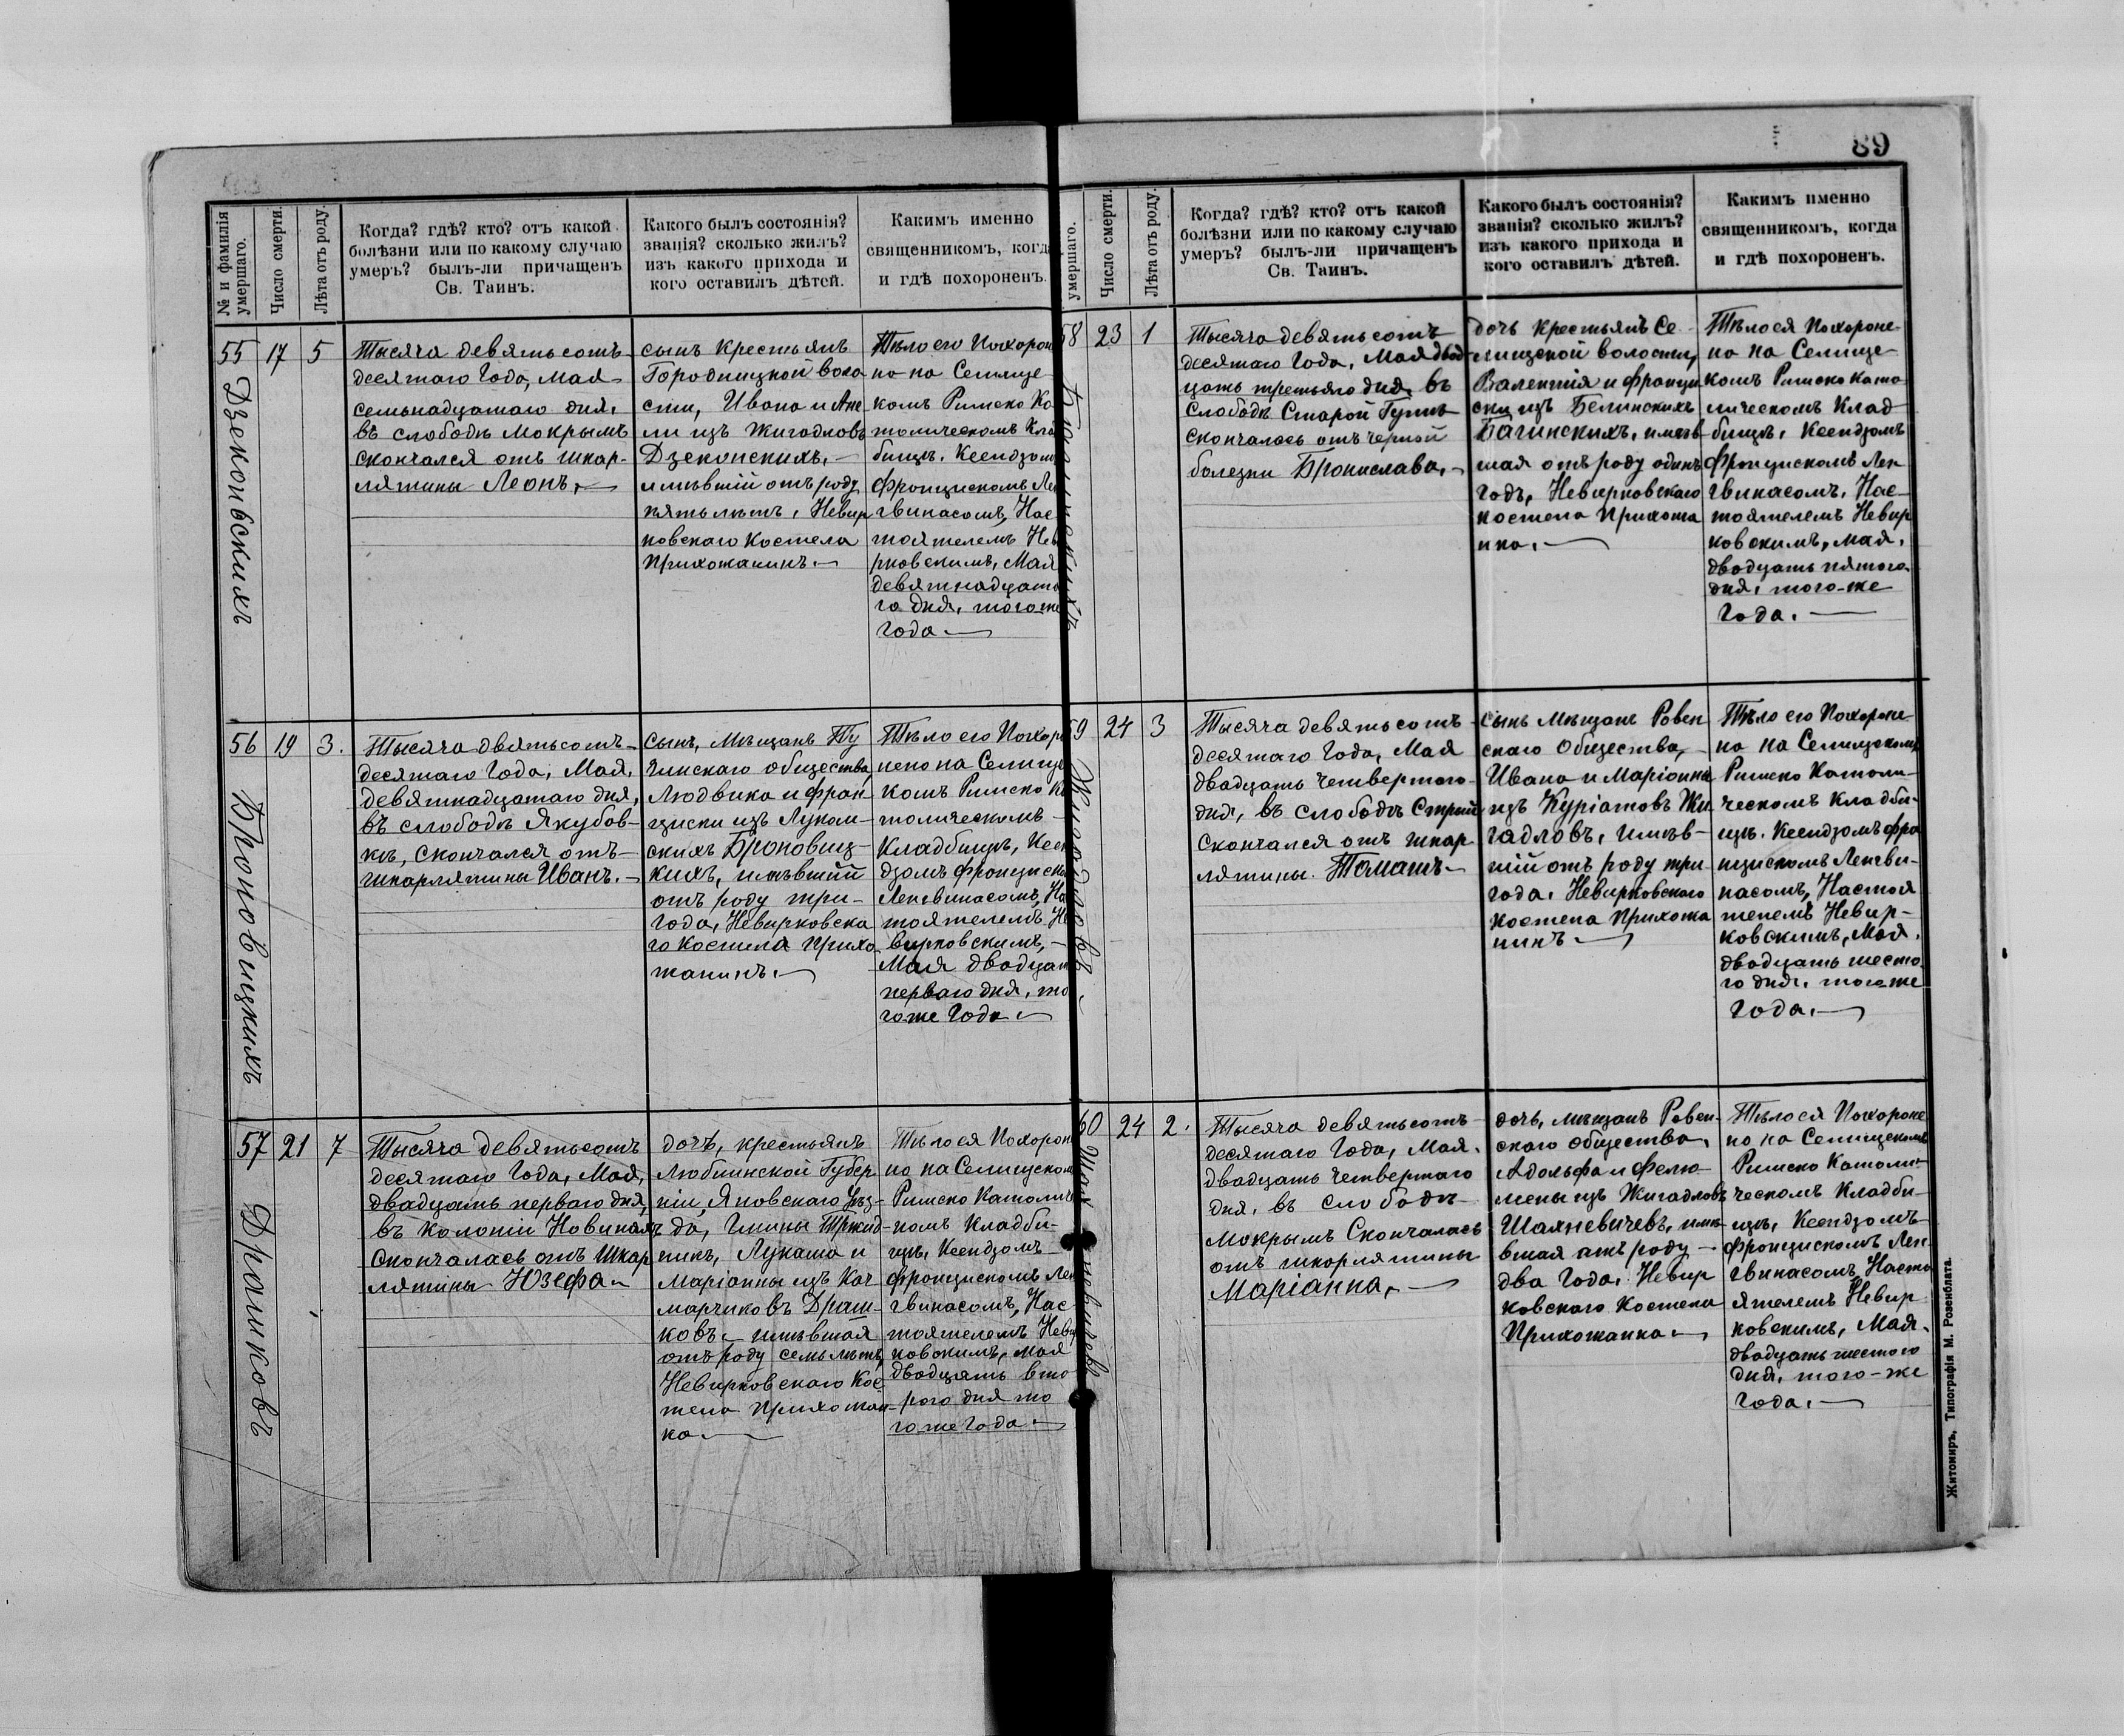 89
№ и фамилія умершаго.
Число смерти.
Лѣта отъ роду.
Когда? гдѣ? кто? отъ какой
болѣзни или по какому случаю
умеръ? былъ-ли причащенъ
Св. Таинъ.
Какого былъ состоянія?
званія? сколько жилъ?
изъ какого прихода и
кого оставилъ дѣтей.
Каким­ъ именно
священникомъ, когда
и гдѣ похороненъ.
55
Дзеконьскихъ
17
5
Тысяча девятьсотъ
десятаго Года, Мая
семьнадцатаго дня,
въ слободѣ Мокрымъ
скончался отъ шкар-
лятины Леонъ,
сынъ крестьянъ
Городницкой воло
сти, Ивана и Ане
ли изъ Жигадловъ
Дзеконскихъ,
имѣвшій отъ роду
пять лѣтъ, Невир
ковскаго Костела
Прихожанинъ.
Тѣло его Похорон
но на Селище
комъ Римско Ка
толическомъ Кла
бищѣ, Ксендзом
Францискомъ Ле
гвинасомъ, Нас
тоятелемъ Нев
рковскимъ, Мая
девятнадцата
го дня, того же
Года
56
Броновицкихъ
19
3.
Тысяча двятьсотъ
десятаго Года, Мая,
девятнадцатаго дня,
въ слободѣ Якубов-
кѣ, скончался отъ
шкарлятины Иванъ.
Сынъ, Мѣщанъ Ту
чинскаго общества,
Людвика и Фран
циски изъ Луком-
скихъ Броновиц-
кихъ, имѣвшій
отъ роду три
Года, Невирковска
го Костела Прихо
жанинъ.
Тѣло его Похор
нено на Селищ
комъ Римско К
толическомъ
Кладбищѣ, Ксен
дзомъ Франциско
Ленгвинасомъ, На
тоятелемъ Не
вирковскимъ,
Мая двадцат
перваго дня, то
гоже Года
57
Драшковъ
21
7
Тысяча девятьсотъ
десятаго Года, Мая,
двадцать перваго дня,
въ Колоніи Новинахъ
Скончалась отъ Шкар
лятины Юзефа
дочь, крестьянъ
Люблинской Губер
ніи, Яновскаго Уѣз-
да, Гмины Тржид-
никъ, Лукаша и
Маріанны изъ Кач
марчиковъ Драш-
ковъ имѣвшая
отъ роду семь лѣтъ,
Невирковскаго Кос
тела Прихожан-
ка
Тѣло ея Похорон
но на Селищском
Римско Католич
комъ Кладби-
щѣ, Ксендзомъ
Францискомъ Лен
гвинасомъ, Нас
тоятелемъ Неви
ковскимъ, Мая
двадцать вто
рого дня то
гоже Года
умершаго.
Число смерти.
Лѣта отъ роду.
Когда? гдѣ? кто? отъ какой
болѣзни или по какому случаю
умеръ? былъ-ли причащенъ
Св. Таинъ.
Какого былъ состоянія?
званія? сколько жилъ?
изъ какого прихода и
кого оставилъ дѣтей.
Какимъ именно
священникомъ, когда
и гдѣ похороненъ.
58
23
1
Тысяча девятьсотъ
десятаго Года, Мая двад
цать третьяго дня, въ
Слободѣ Старой Гутѣ
Скончалась отъ черной
болезни Бронислава,
дочь крестьянъ Се
лищской волости,
Валентія и Францы
ски изъ Белинскихъ
Багинскихъ, имѣв
шая отъ роду одинъ
Годъ, Невирковскаго
костела Прихожа
нка.
Тѣло ея Похороне
но на Селище
комъ Римско Като
лическомъ Клад
бищѣ, Ксендзомъ
Францискомъ Лен
гвинасомъ, Нас
тоятелемъ Невир
ковскимъ, Мая,
двадцать пятого
дня, того-же
Года.
59
Жигадловъ
24
3
Тысяча девятьсотъ
десятаго Года, Мая
двадцать четвертаго
дня, въ слободѣ Стрый
Скончался отъ шкар
лятины Томашъ
сынъ Мѣщанъ Ровен
скаго Общества,
Ивана и Маріанны
изъ Куріатовъ Жи
гадловъ, имѣв-
шій отъ роду три
года, Невирковскаго
Костела Прихожа
нинъ
Тѣло его Похороне
но на Селищскомъ
Римско Католи
ческомъ Кладби-
щѣ. Ксендзомъ Фра
нцискомъ Ленгви-
насомъ, Настоя
телемъ Невир-
ковскимъ, Мая,
двадцать шесто
го дня, тогоже
Года.
60
24
2.
Тысяча девятьсотъ
десятаго Года, Мая,
двадцать четвертаго
дня, въ слободѣ
Мокрымъ Скончалась
отъ шкорлятины
Маріанна,
дочь, мѣщанъ Ровен-
скаго общества,
Адольфа и Фелю-
мены изъ Жигадловъ
Шахневичевъ, имѣ
вшая отъ роду
два Года, Невир
ковскаго Костела
Прихожанка
Тѣло ея Похороне
но на Селищскомъ
Римско Католи-
ческомъ Кладби-
щѣ, Ксендзомъ
Францискомъ Лен-
гвинасомъ, Насто
ятелемъ Невир
ковскимъ, Мая.
двадцать шестого
дня, того-же
Года.
Житомиръ, Типографія М. Розенблата.